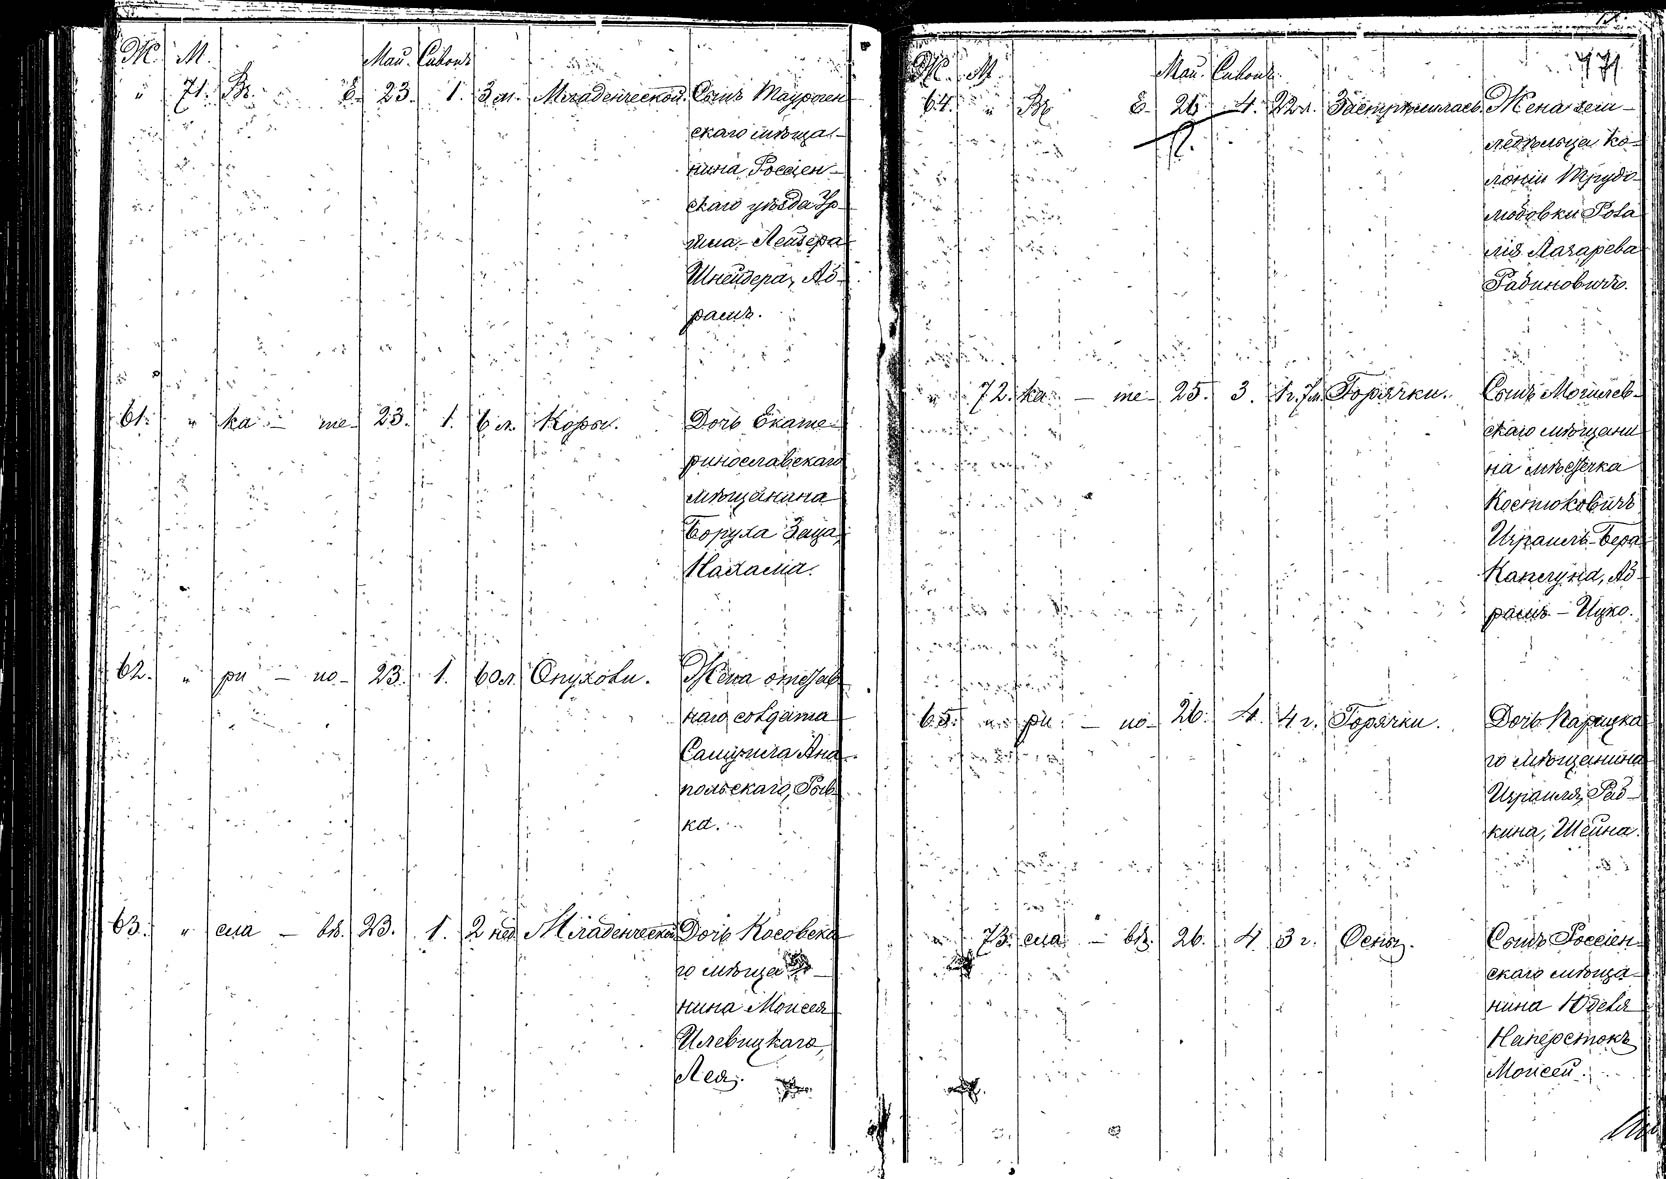 Ж. М. Май. Сивонъ
„ 71. Въ Е- 23. 1. 3 м. Младенческой. Сынъ Тауроген-
скаго мѣща-
нина Россіен-
скаго уѣзда
Лейзера
Шнейдера, Аб-
рамъ.
61. „ ка - те- 23. 1. 6 л. Корь. Дочь Екате-
ринославскаго
мѣщанина
Боруха Заца,
Нахама.
62. „ ри - но- 23. 1. 60 л. Опухоли. Жена отстав-
наго солдата
Самуила Ана-
польскаго, Рыв-
ка.
63. „ сла - вѣ. 23. 1. 2 нед. Младенческой Дочь Косовска-
го мѣща-
нина Моисея
Илевицкаго,
Лея.
171
Ж. М. Май. Сивонъ
64. „ Въ Е- 26 4. 22 л. Застрѣлилась. Жена зем-
ледѣльца ко-
лоніи Трудо-
любовки
Лазарева
Рабиновичъ.
„ 72. ка - те- 25. 3. 1 г. 7 м. Горячки. Сынъ Могилев-
скаго мѣщани
на мѣстечка
Костюковичъ
Израиль-Бера
Каплуна, Аб-
рамъ - Ицко.
65. „ ри - но- 26. 4. 4 г. Горячки. Дочь Паричка
го мѣщанина
Израиля Раб-
кина, Шейна.
„ 73. сла - вѣ. 26. 4 3 г. Оспы. Сынъ Россіен-
скаго мѣща-
нина Юделя
Наперстокъ
Моисей.